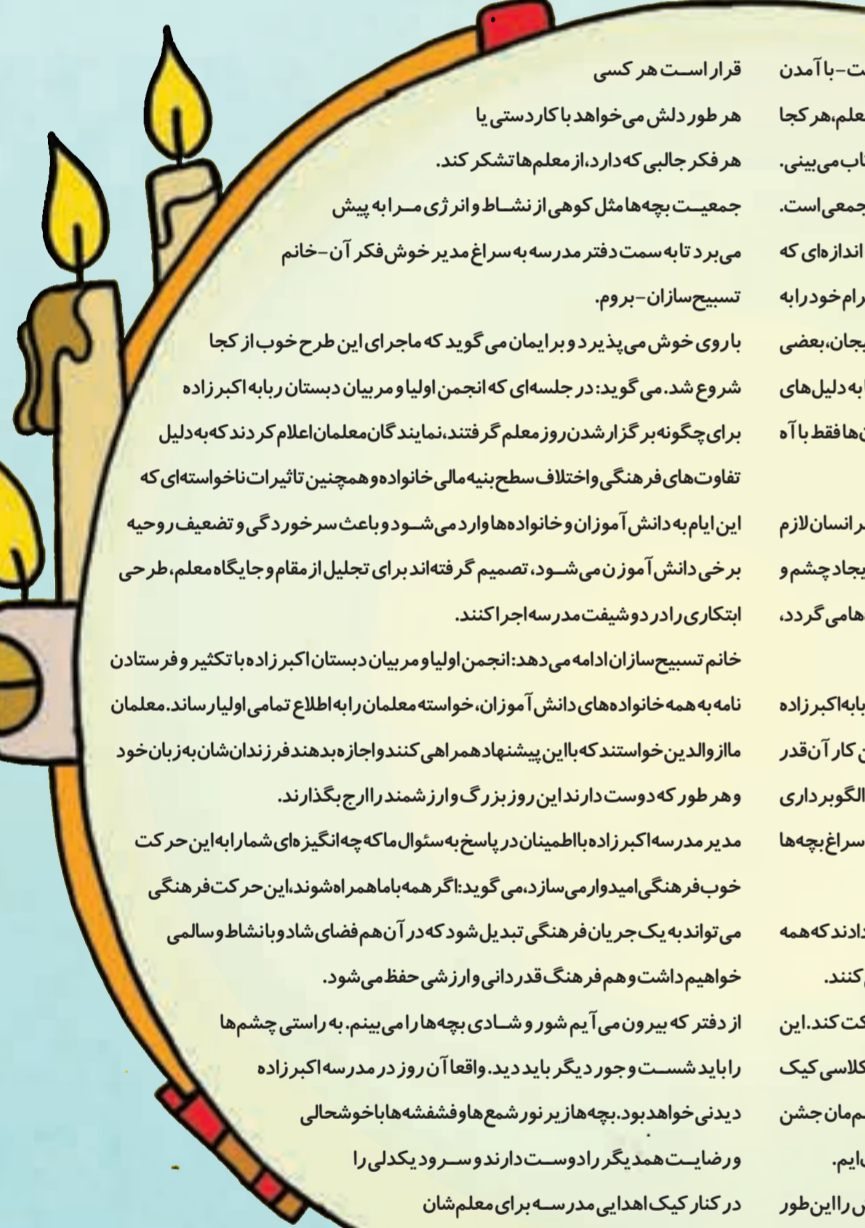 ت-با آمدن
علم،هر کجا
اب می‌بینی.
جمعی است.
اندازه‌ای که
رام خود را به
یجان، بعضی
ا به دلیل‌های
ن‌ها فقط با آه
ر انسان لازم
یجاد چشم و
ها می گردد،
بابه اکبرزاده
ن کار آن‌قدر
الگوبرداری
سراغ بچه‌ها
دادند که همه
کنند.
کت کند. این
کلاسی کیک
م‌مان جشن
ایم.
را این‌طور
قرار است هر کسی
هر طور دلش می‌خواهد با کاردستی یا
هر فکر جالبی که دارد، از معلم‌ها تشکر کند.
جمعیت بچه‌ها مثل کوهی از نشاط و انرژی مرا به پیش
می‌برد تا به سمت دفتر مدرسه به سراغ مدیر خوش فکر آن-خانم
تسبیح‌سازان-بروم.
با روی خوش می‌پذیرد و برایمان می گوید که ماجرای این طرح خوب از کجا
شروع شد. می گوید: در جلسه‌ای که انجمن اولیا و مربیان دبستان ربابه اکبرزاده
برای چگونه برگزار شدن روز معلم گرفتند، نمایندگان معلمان اعلام کردند که به دلیل
تفاوت‌های فرهنگی و اختلاف سطح بنیه مالی خانواده و همچنین تاثیرات ناخواسته‌ای که
این ایام به دانش آموزان و خانواده‌ها وارد می‌شود و باعث سرخوردگی و تضعیف روحیه
برخی دانش آموز ن می‌شود، تصمیم گرفته‌اند برای تجلیل از مقام و جایگاه معلم، طرحی
ابتکاری را در دو شیفت مدرسه اجرا کنند.
خانم تسبیح‌سازان ادامه می‌دهد: انجمن اولیا و مربیان دبستان اکبرزاده با تکثیر و فرستادن
نامه به همه خانواده‌های دانش آموزان، خواسته معلمان را به اطلاع تمامی اولیا رساند. معلمان
ما از والدین خواستند که با این پیشنهاد همراهی کنند و اجازه بدهند فرزندان‌شان به زبان خود
و هر طور که دوست دارند این روز بزرگ و ارزشمند را ارج بگذارند.
مدیر مدرسه اکبرزاده با اطمینان در پاسخ به سئوال ما که چه انگیزه‌ای شما را به این حرکت
خوب فرهنگی امیدوار می‌سازد، می گوید: اگر همه با ما همراه شوند، این حرکت فرهنگی
می‌تواند به یک جریان فرهنگی تبدیل شود که در آن هم فضای شاد و بانشاط و سالمی
خواهیم داشت و هم فرهنگ قدردانی و ارزشی حفظ می‌شود.
از دفتر که بیرون می‌آیم شور و شادی بچه‌ها را می‌بینم. به راستی چشم‌ها
را باید شست و جور دیگر باید دید. واقعا آن روز در مدرسه اکبرزاده
دیدنی خواهد بود. بچه‌ها زیر نور شمع‌ها و فشفشه‌ها با خوشحالی
و رضایت همدیگر را دوست دارند و سرود یکدلی را
در کنار کیک اهدایی مدرسه برای معلم‌شان